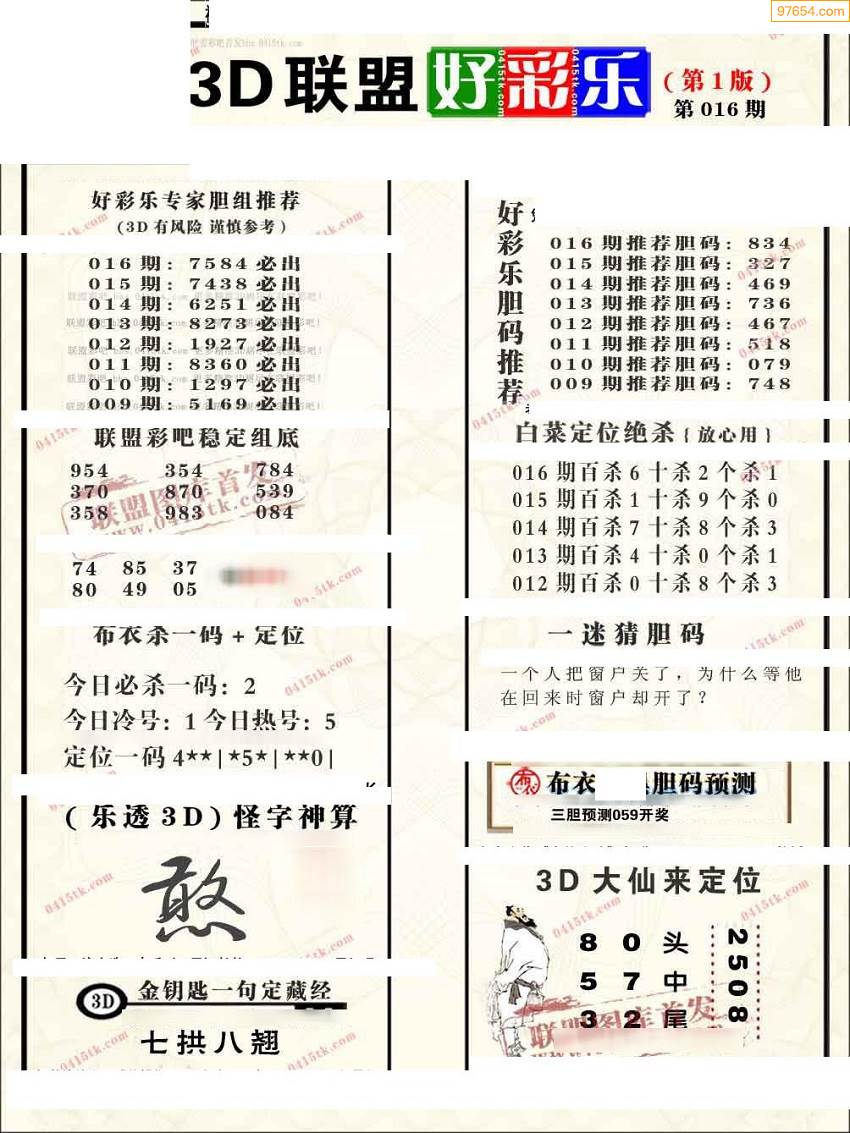 97654.com
3D联盟好彩乐
(第1版)
第016期
好彩乐专家胆组推荐
(3D有风险 谨慎参考)
016期: 7584必出
015期: 7438必出
014期: 6251必出
013期: 8273必出
012期: 1927必出
011期: 8360必出
010期: 1297必出
009期: 5169必出
联盟彩吧稳定组底
954 354 784
370 870 539
358 983 084
联盟图库首发
www.0415tk.com
74 85 37
80 49 05
布衣杀一码+定位
今日必杀一码: 2
今日冷号: 1 今日热号: 5
定位一码 4**|*5*|**0|
(乐透3D)怪字神算
憨
3D 金钥匙一句定藏经
七拱八翘
好彩乐胆码推荐
016期推荐胆码: 834
015期推荐胆码: 327
014期推荐胆码: 469
013期推荐胆码: 736
012期推荐胆码: 467
011期推荐胆码: 518
010期推荐胆码: 079
009期推荐胆码: 748
白菜定位绝杀{放心用}
016期百杀6十杀2个杀1
015期百杀1十杀9个杀0
014期百杀7十杀8个杀3
013期百杀4十杀0个杀1
012期百杀0十杀8个杀3
一迷猜胆码
一个人把窗户关了，为什么等他
在回来时窗户却开了？
布衣 胆码预测
三胆预测059开奖
3D大仙来定位
8 0 头
5 7 中
3 2 尾
2508
联盟图库首发
0415tk.com